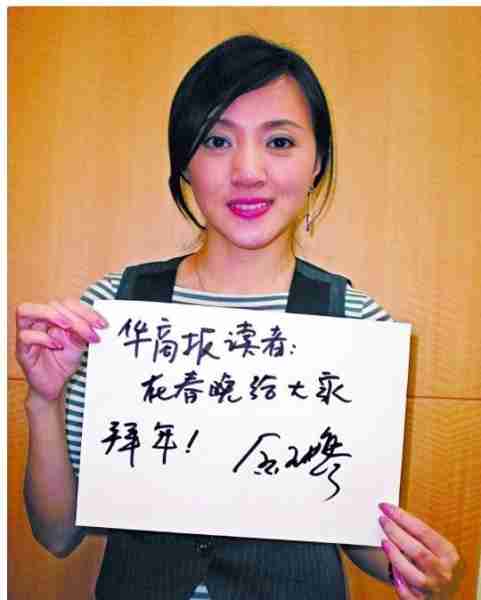 华商报读者：
在春晚给大家
拜年！